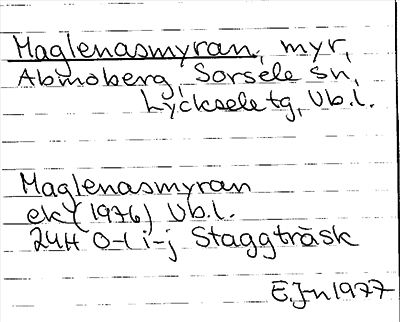 Maglenasmyran, myr,
Abmoberg, Sorsele sn,
Lycksele tg, Vb.l.
Maglenasmyran
ek (1976) Vb.l.
24H 0-1 i-j Staggträsk
E.J-n 1977